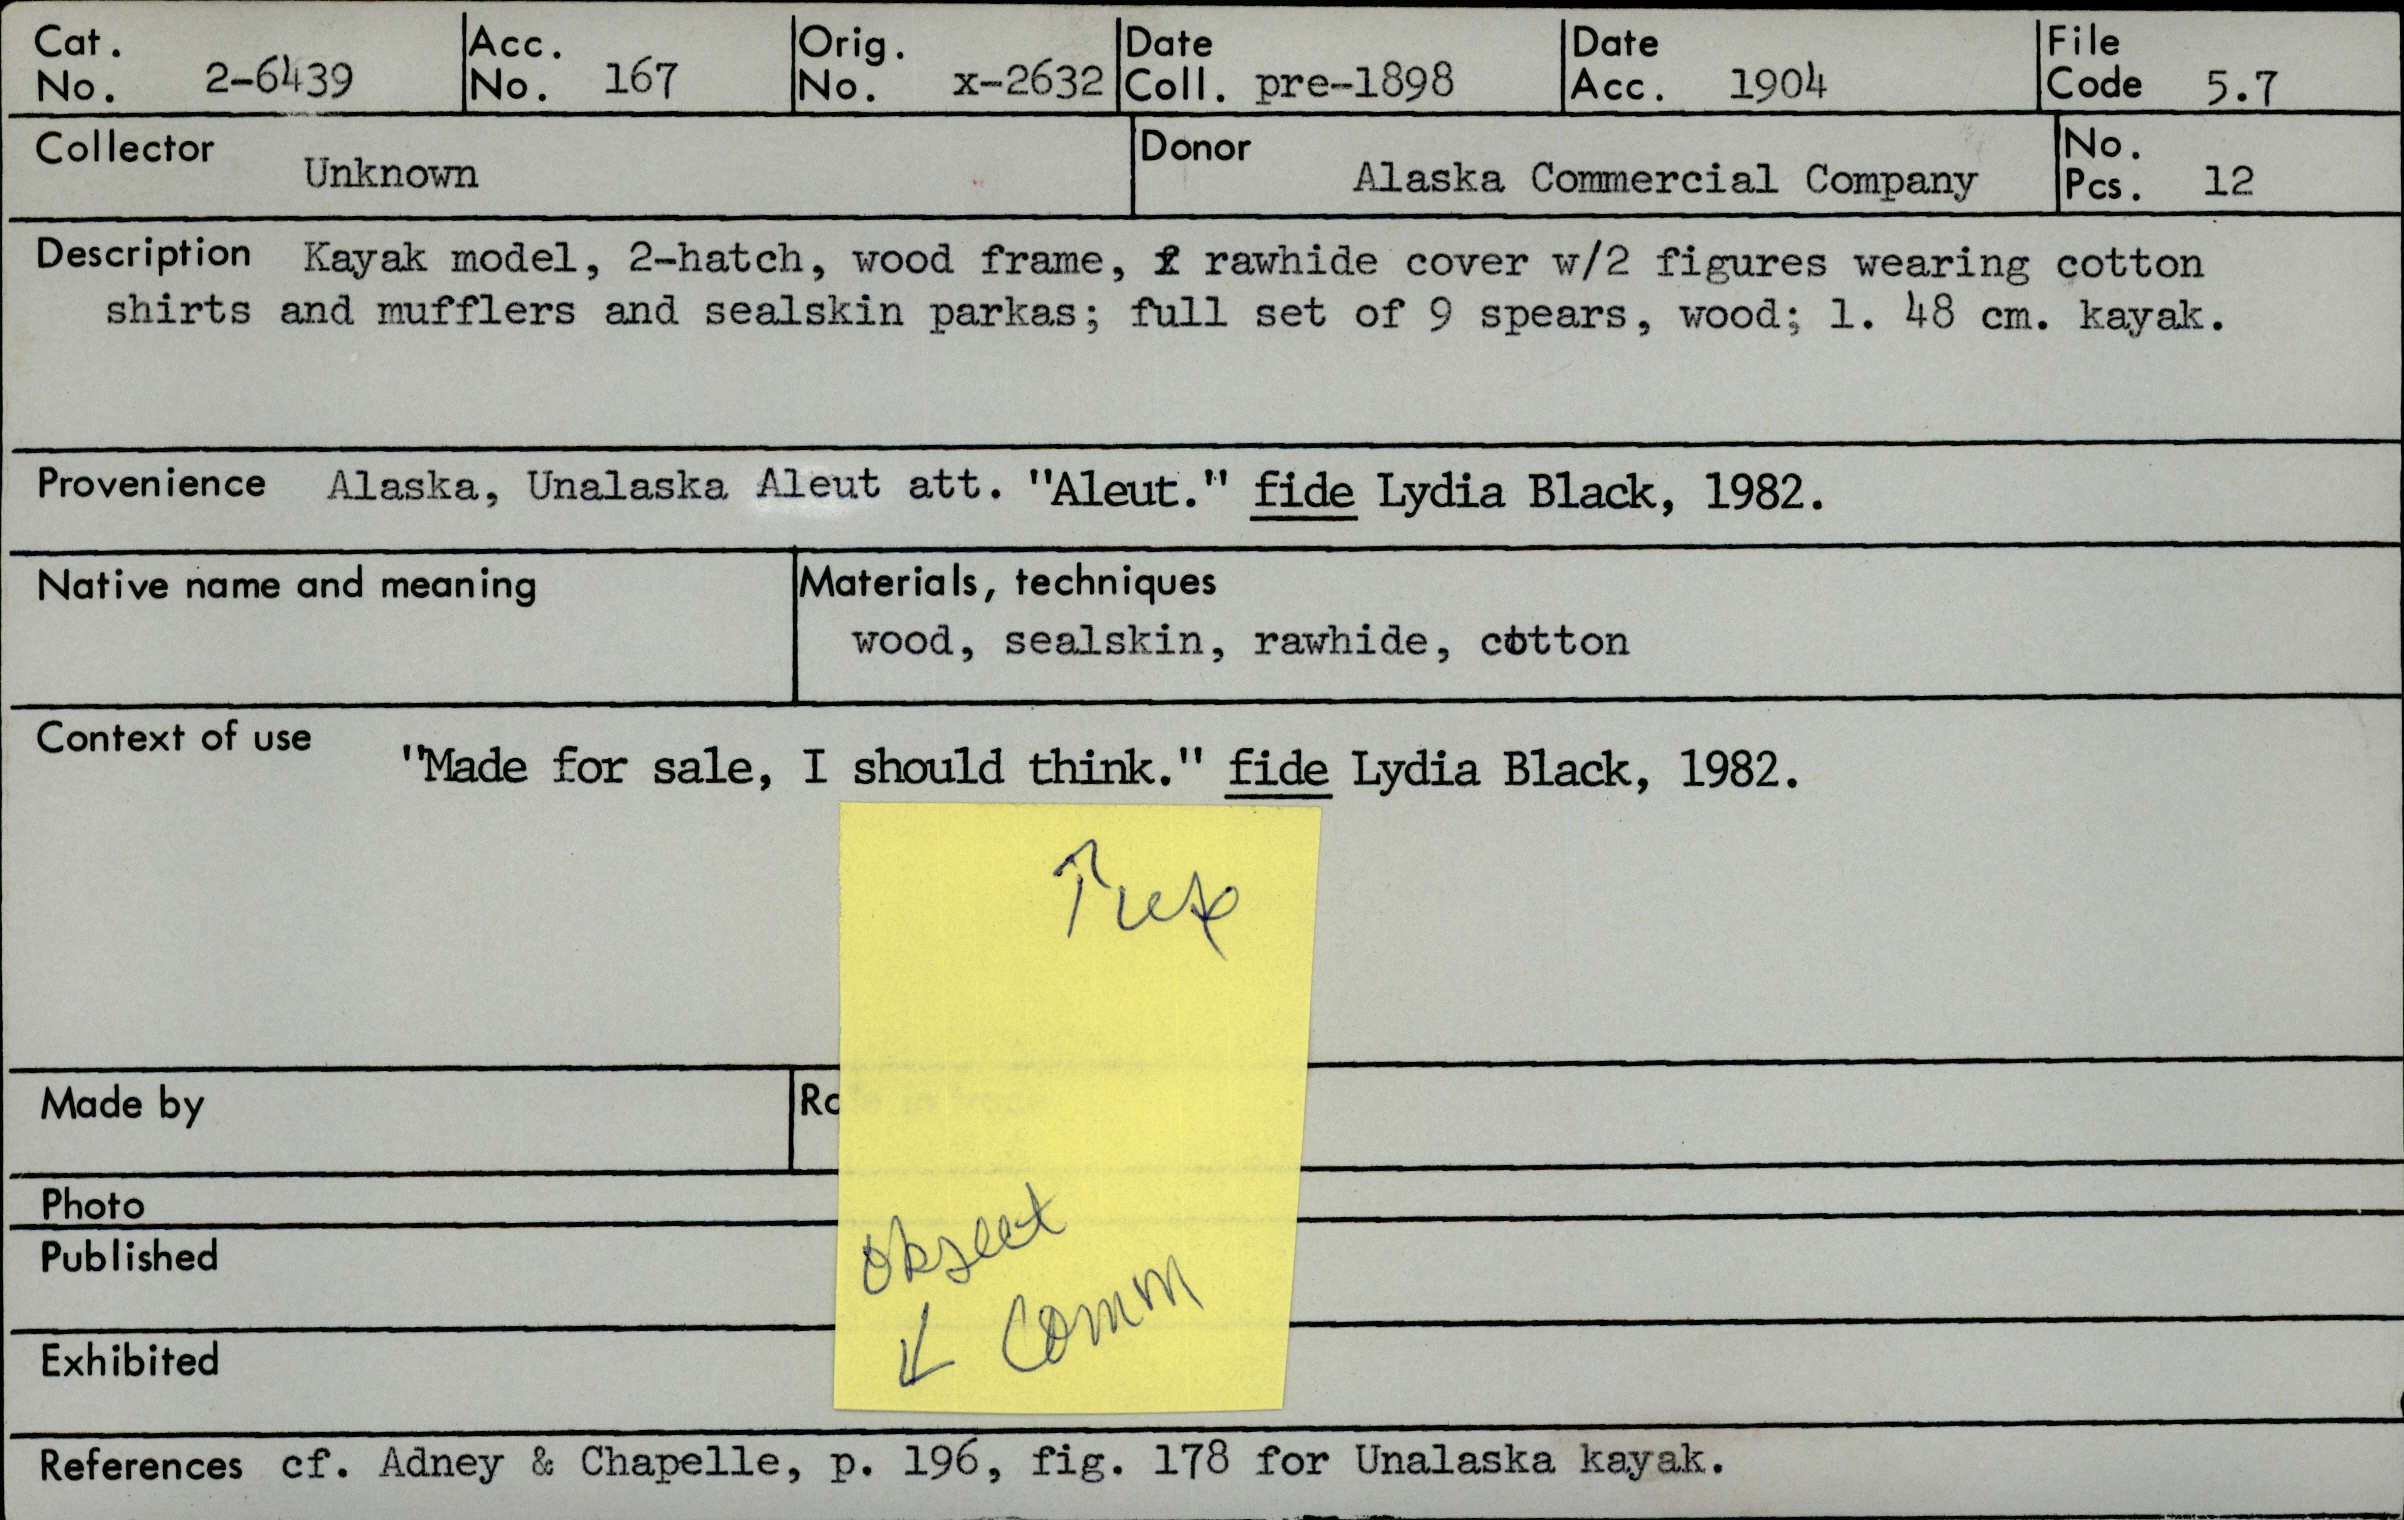 Cat. No. 2-6439
Acc. No. 167
Orig. No. x-2632
Date Coll. pre-1898
Date Acc. 1904
File Code 5.7
Collector Unknown
Donor Alaska Commercial Company
No. Pcs. 12
Description Kayak model, 2-hatch, wood frame, rawhide cover w/2 figures wearing cotton
shirts and mufflers and sealskin parkas; full set of 9 spears, wood; l. 48 cm. kayak.
Provenience Alaska, Unalaska Aleut att. "Aleut." fide Lydia Black, 1982.
Native name and meaning
Materials, techniques
wood, sealskin, rawhide, cotton
Context of use "Made for sale, I should think." fide Lydia Black, 1982.
↑ use
Made by
Photo
Published
object
↓ Comm
Exhibited
References cf. Adney & Chapelle, p. 196, fig. 178 for Unalaska kayak.